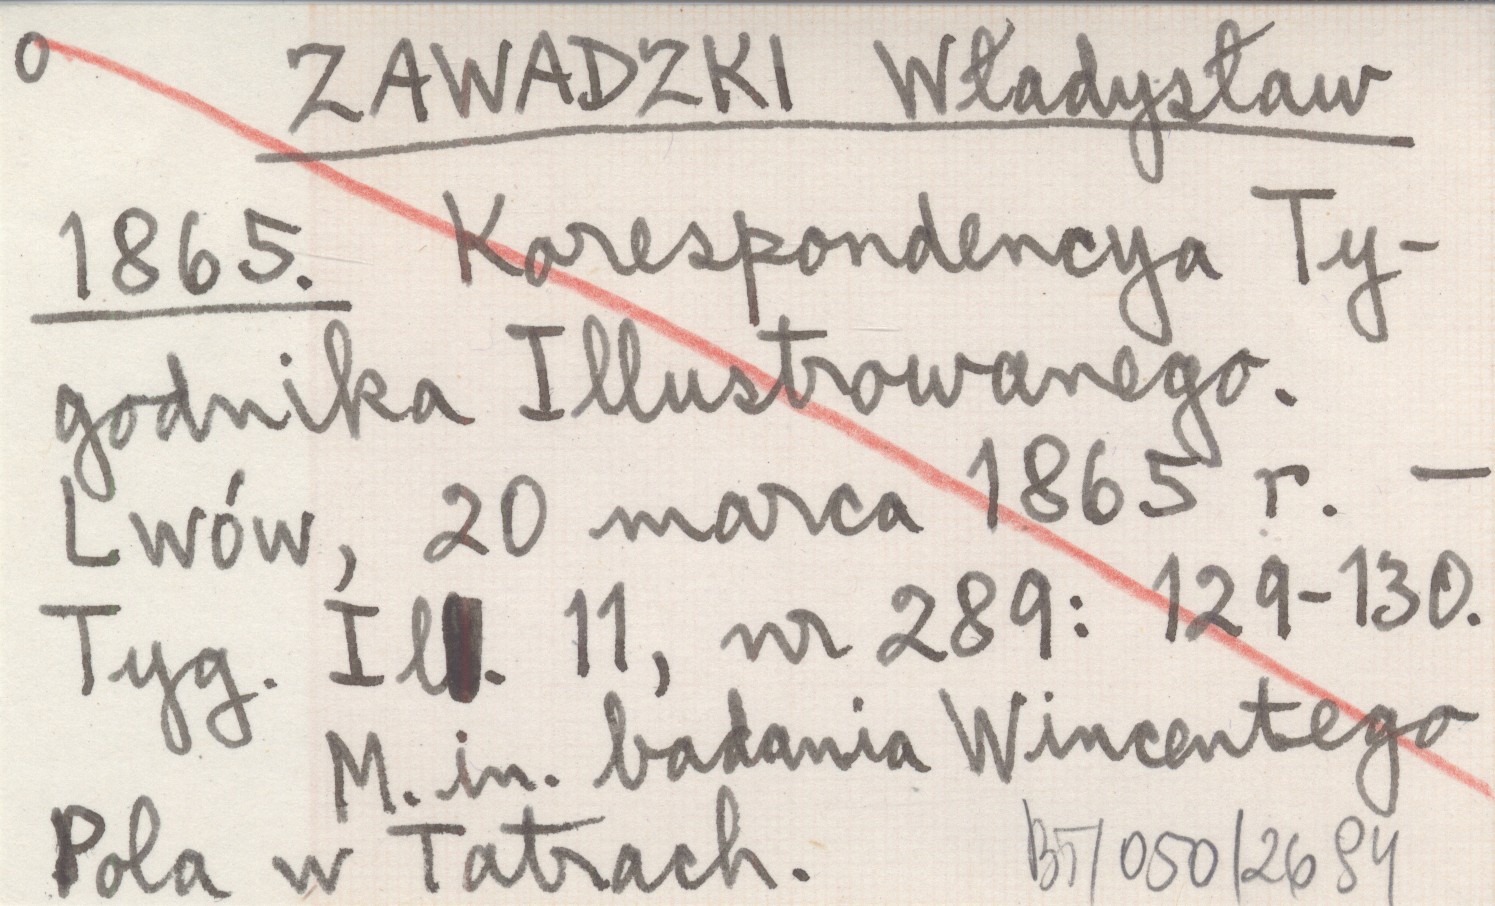 o ZAWADZKI Władysław
1865. Korespondencya Ty-
godnika Illustrowanego.
Lwów, 20 marca 1865 r. —
Tyg. Il. 11, nr 289: 129-130.
M. in. badania Wincentego
Pola w Tatrach.
BT/050/2684